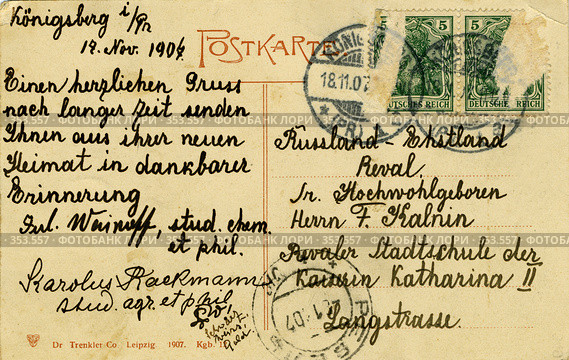 Königsberg i/Pr
17. Nov. 1907
POSTKARTE
5 5
DEUTSCHES REICH DEUTSCHES REICH
18.11.07
Einen herzlichen Gruss
nach langer Zeit senden
Ihnen aus ihrer neuen
Heimat in dankbarer
Erinnerung
stud. chem.
et phil.
Karolus
stud. agr. et phil
Russland - Ehstland
Reval,
Sr. Hochwohlgeboren
Herrn F. Kalnin
Revaler Stadtschule der
Kaiserin Katharina II
Langstrasse.
Dr Trenkler Co Leipzig. 1907. Kgb.
353 557 · ФОТОБАНК ЛОРИ · 353 557 · ФОТОБАНК ЛОРИ